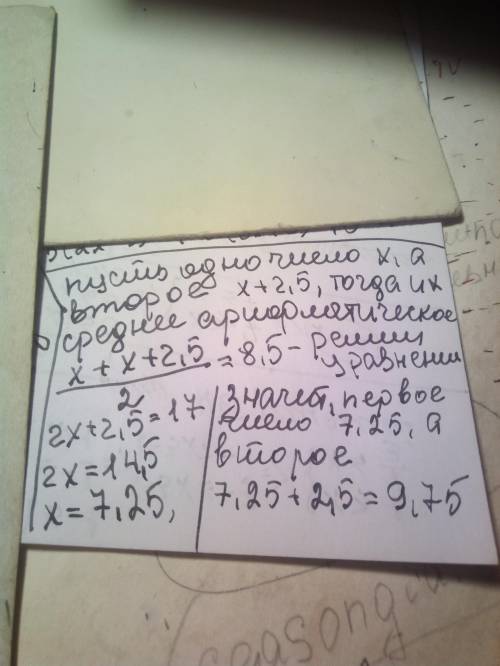 пусть одно число x, а
второе x+2,5, тогда их
среднее арифметическое
x + x + 2,5 / 2 = 8,5 - решим уравнение
2x+2,5=17
2x=14,5
x=7,25,
Значит, первое
число 7,25, а
второе
7,25+2,5=9,75